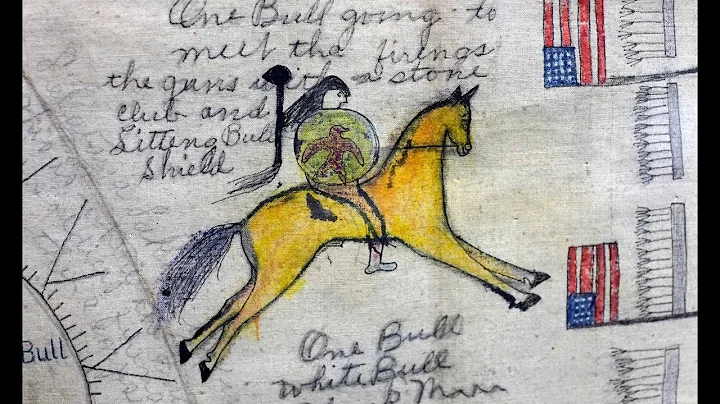 One Bull going to
meet the firengs
the guns with a stone
club and
Sitting Bull
Shield
Bull
One Bull
White Bull